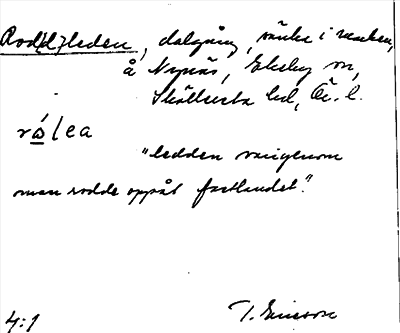 Rod(d)leden, dalgång, sänka i marken,
å Nynäs, Ekeby sn,
Sköllersta hd, Ör. l.
rό̲/ea
"ledden varigenom
man rodde oppåt fastlandet."
4:1 T. Ericsson